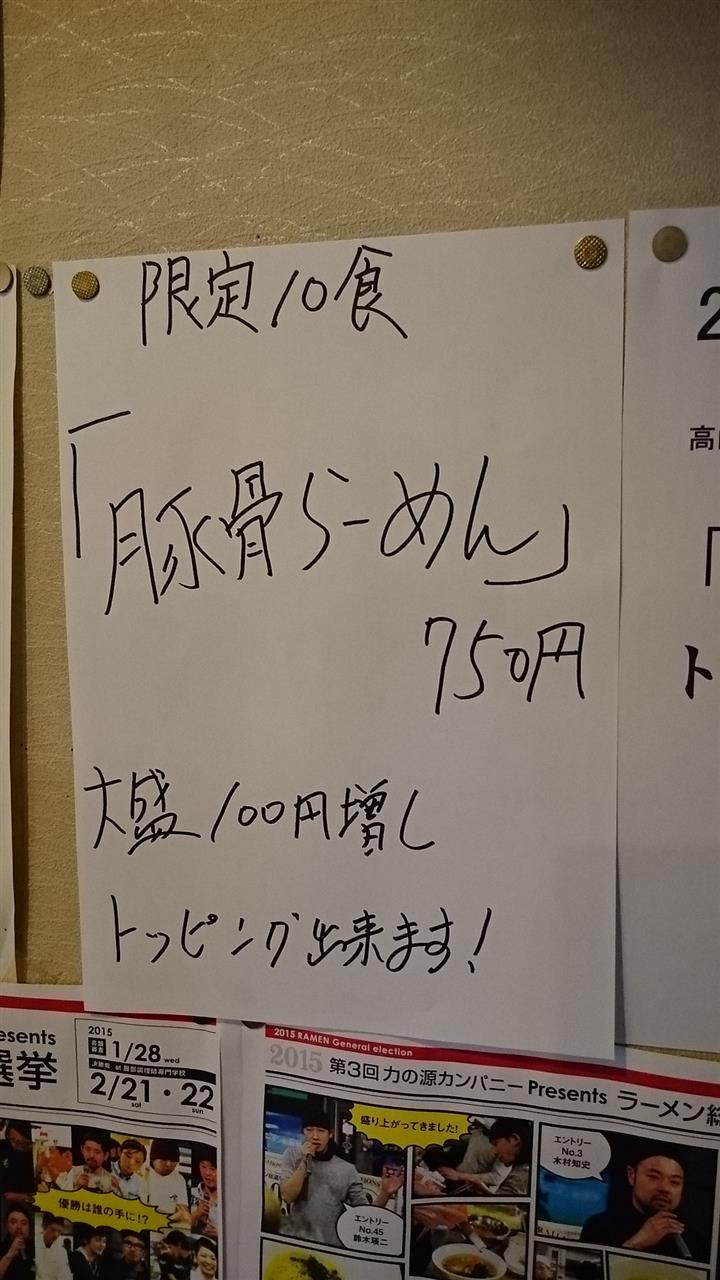 限定10食
「豚骨らーめん」
750円
大盛100円増し
トッピング出来ます!
2
高
「
ト
esents
選挙
2015
1/28 wed
決勝戦 at 服部調理師専門学校
2/21・22
sat sun
優勝は誰の手に!?
2015 RAMEN General election
2015 第3回 力の源カンパニー Presents ラーメン総
盛り上がってきました!
エントリー
No.3
木村知史
エントリー
No.45
鈴木瑛二